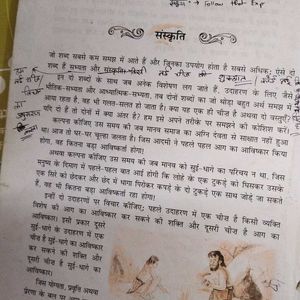 Follow that Exp
संस्कृति
जो शब्द सबसे कम समझ में आते हैं और जिनका उपयोग होता है सबसे अधिक; ऐसे दो
शब्द हैं सभ्यता और संस्कृति
इन दो शब्दों के साथ जब अनेक विशेषण लग जाते हैं, उदाहरण के लिए जैसे
भौतिक-सभ्यता और आध्यात्मिक-सभ्यता, तब दोनों शब्दों का जो थोड़ा बहुत अर्थ समझ में
आया रहता है, वह भी गलत-सलत हो जाता है। क्या यह एक ही चीज़ है अथवा दो वस्तुएँ?
यदि दो हैं तो दोनों में क्या अंतर है? हम इसे अपने तरीके पर समझने की कोशिश करें।
कल्पना कीजिए उस समय की जब मानव समाज का अग्नि देवता से साक्षात नहीं हुआ
था। आज तो घर-घर चूल्हा जलता है। जिस आदमी ने पहले पहल आग का आविष्कार किया
होगा, वह कितना बड़ा आविष्कर्ता होगा!
अथवा कल्पना कीजिए उस समय की जब मानव को सुई-धागे का परिचय न था, जिस
मनुष्य के दिमाग में पहले-पहल बात आई होगी कि लोहे के एक टुकड़े को घिसकर उसके
एक सिरे को छेदकर और छेद में धागा पिरोकर कपड़े के दो टुकड़े एक साथ जोड़े जा सकते
हैं, वह भी कितना बड़ा आविष्कर्ता रहा होगा!
इन्हीं दो उदाहरणों पर विचार कीजिए; पहले उदाहरण में एक चीज़ है किसी व्यक्ति
विशेष की आग का आविष्कार कर सकने की शक्ति और दूसरी चीज़ है आग का
आविष्कार। इसी प्रकार दूसरे
सुई-धागे के उदाहरण में एक
चीज़ है सुई-धागे का आविष्कार
कर सकने की शक्ति और
दूसरी चीज़ है सुई-धागे का
आविष्कार।
जिस योग्यता, प्रवृत्ति अथवा
प्रेरणा के बल पर आग का